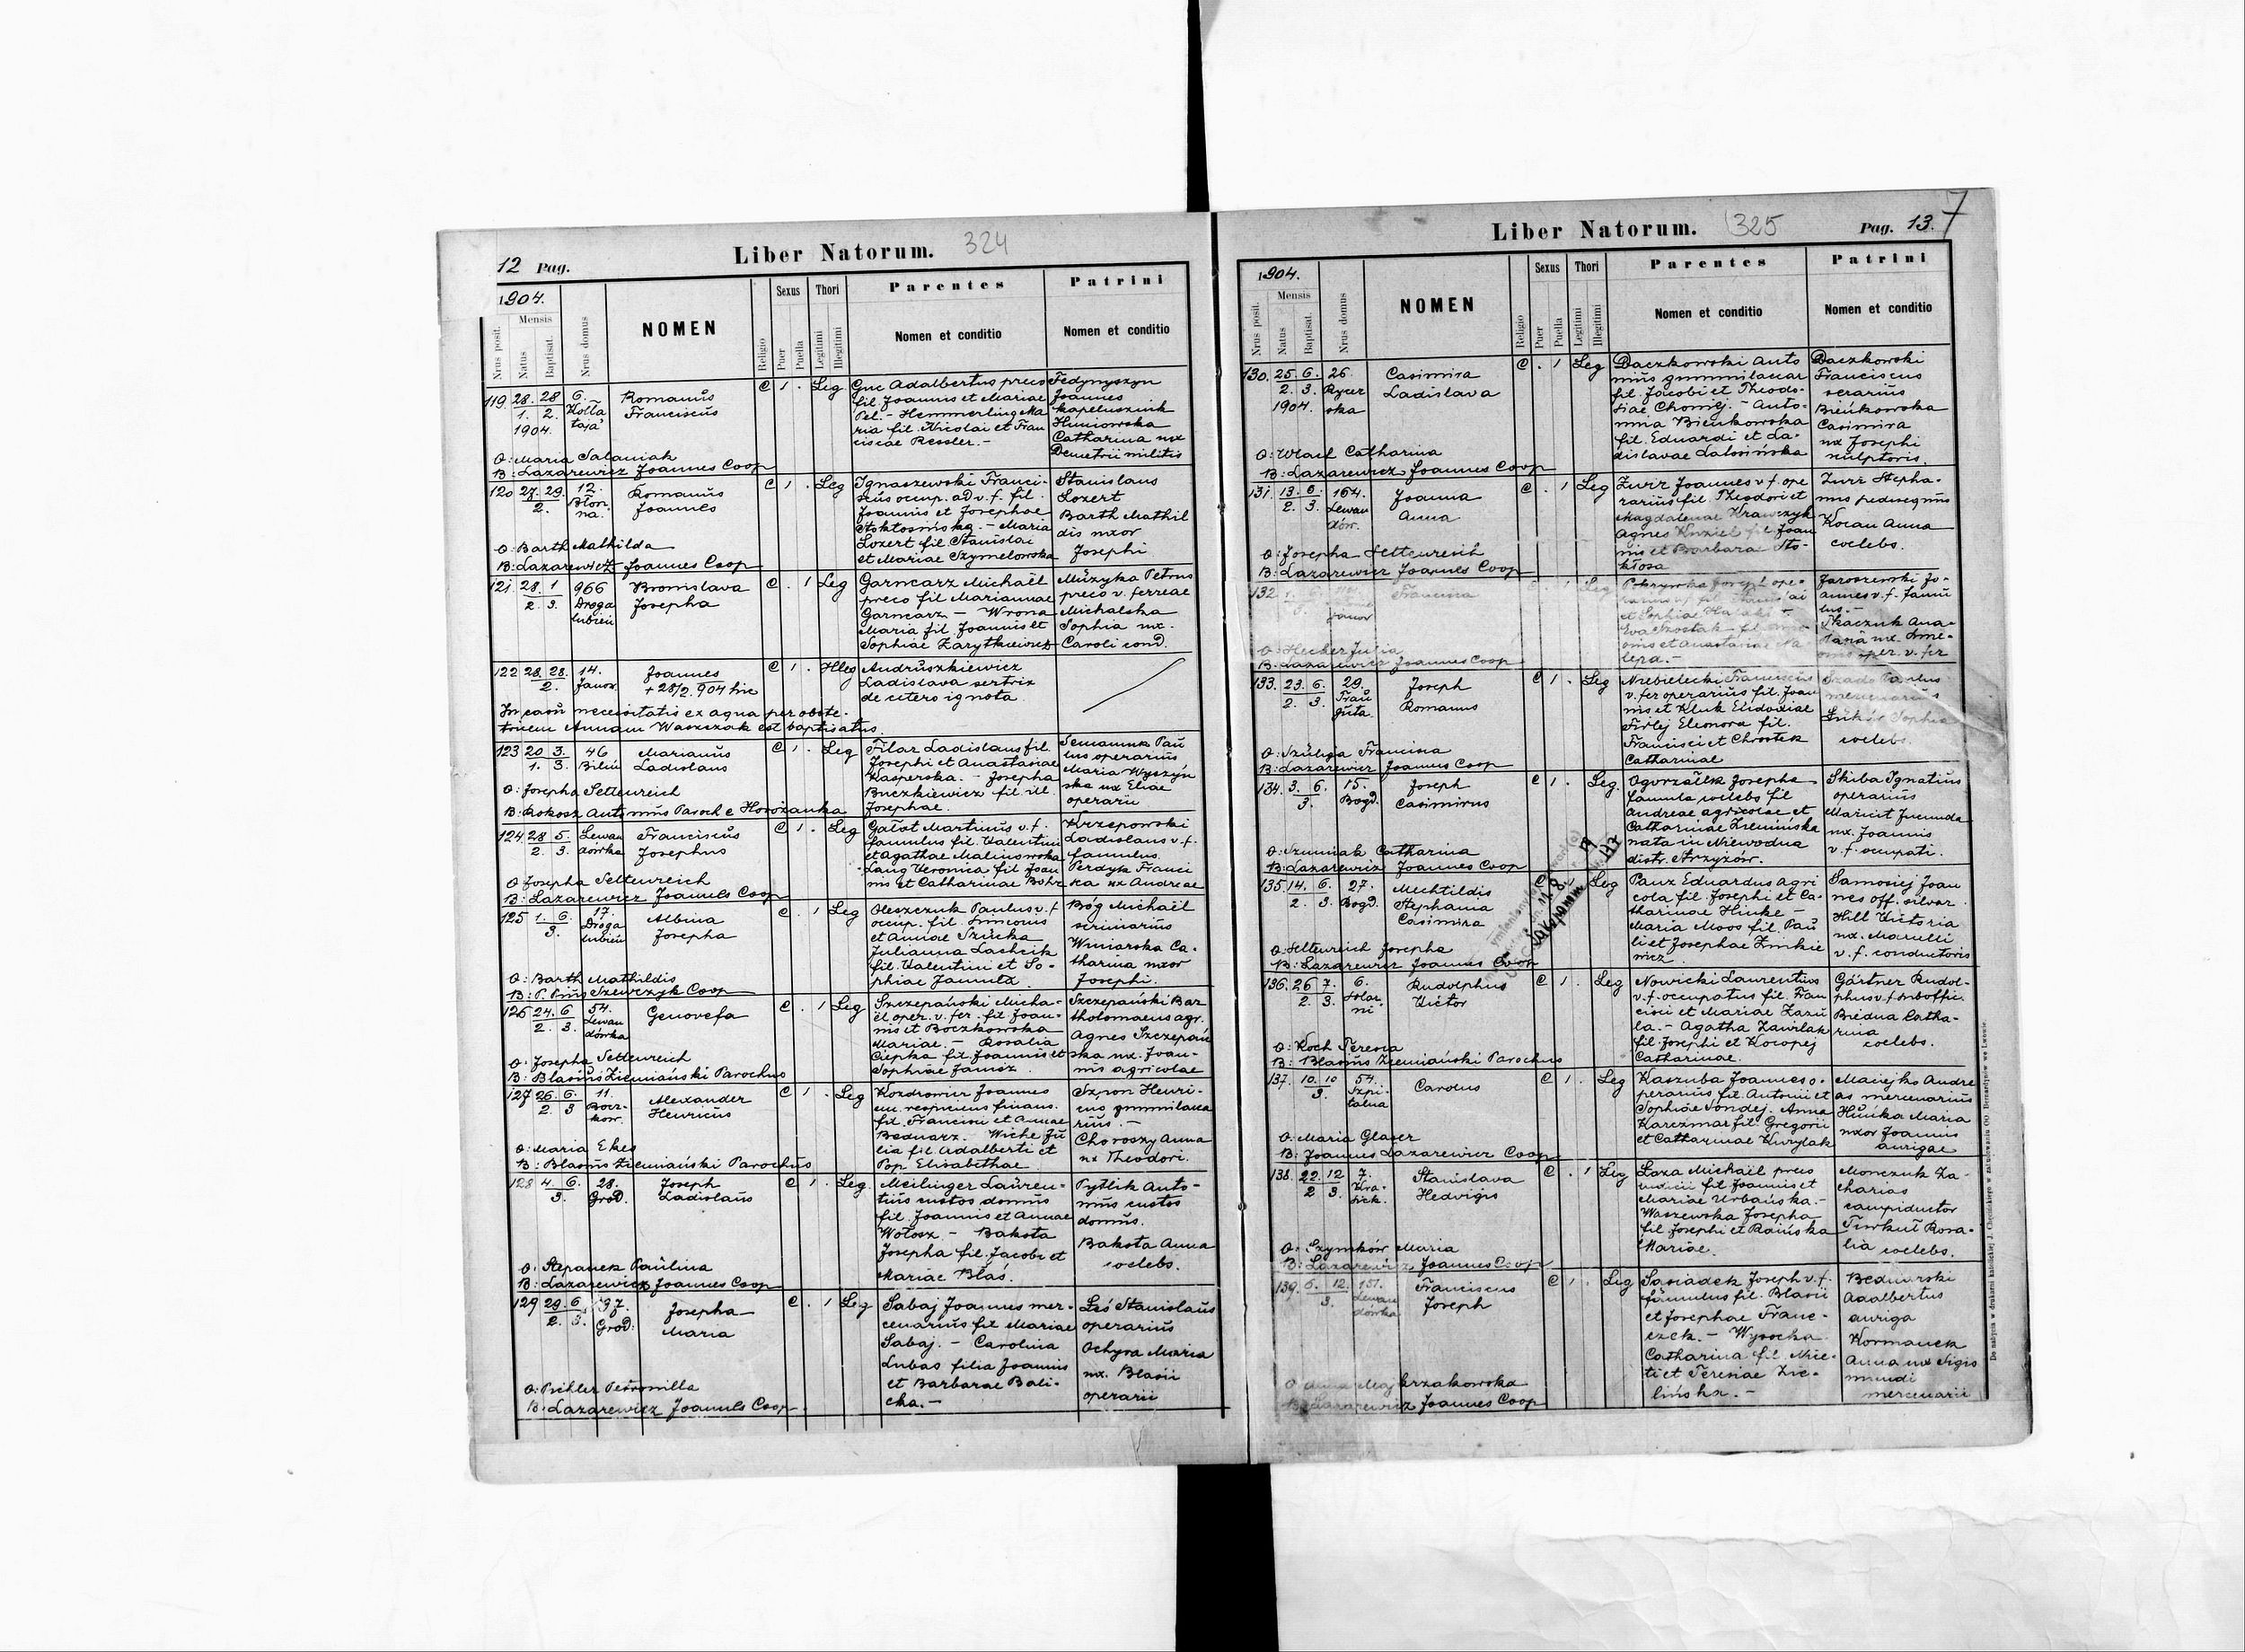 12 Pag.
Liber Natorum. 324
1904.
Nrus posit.
Mensis
Natus
Baptisat.
Nrus domus
NOMEN
Religio
Sexus
Puer
Puella
Thori
Legitimi
Illegitimi
Parentes
Nomen et conditio
Patrini
Nomen et conditio
119. 28. 28 6. Romanus C 1 . Leg
1. 2. Kołła Franciscus
1904. taja
Guc Adalbertus preco
fil. Joannis et Mariae
Pel. - Hemmerling Ma
ria fil. Nicolai et Fran
ciscae Ressler. -
Fedynyszyn
Joannes
kapelusznik
Huniowska
Catharina ux
Demetrii militis
O: Maria Salaniak
B: Lazarewicz Joannes Coop
120 27. 29. 12. Romanus C 1 . Leg
2. Błon Joannes
na.
Ignaszewski Franci-
scus occup. ad v. f. fil.
Joannis et Josephae
Stoktosińska. - Maria
Lozert fil Stanislai
et Mariae Szymelowska
Stanislaus
Lozert
Barth Mathil
dis uxor
Josephi
O: Barth Mathilda
B: Lazarewicz Joannes Coop
121. 28. 1 966 Bronislava C . 1 Leg
2. 3. Droga Josepha
lubień
Garncarz Michaël
preco fil Mariannae
Garncarz - Wrona
Maria fil. Joannis et
Sophiae Zarytkiewicz
Muzyka Petrus
preco v. ferreae
Michalska
Sophia ux.
Caroli cond.
122 28. 28. 14. Joannes C 1 . Illeg
2. Janow. + 28/2. 904 hic
Andruszkiewicz
Ladislava sertrix
de cetero ignota
In casu necessitatis ex aqua per obste-
tricem Annam Waszczak est baptisatus.
123 20 3. 46 Marianus C 1 . Leg
1. 3. Bilin Ladislaus
Filar Ladislaus fil.
Josephi et Anastasiae
Kasperska. - Josepha
Buczkiewicz fil ill
Josephae.
Semaniuk Pau
lus operarius
Maria Wyszyń
ska ux Eliae
operarii
O: Josepha Seltenreich
B: Rokosz Antonius Paroch e Horożanka
124. 28 5. Lewan Franciscus C 1 . Leg
2. 3. dówka Josephus
Gałot Martinus v. f.
famulus fil. Valentini
et Agathae Malinowska
Lang Veronica fil Joan
nis et Catharinae Böhr
Krzepowski
Ladislaus v. f.
famulus.
Perdyk Franci
ska ux Andreae
O Josepha Seltenreich
B: Lazarewicz Joannes Coop
125 1. 6. 17. Albina C . 1 Leg
3. Droga Josepha
lubień
Oleszczuk Paulus v. f
occup. fil. Simeonis
et Annae Szucka
Julianna Lachcik
fil. Valentini et So-
phiae Jamuta.
Bóg Michaël
scriniarius
Winiarska Ca-
tharina uxor
Josephi.
O: Barth Mathildis
B: P. Pius Szewczyk Coop
126 24. 6 54. Genovefa C . 1 Leg
2. 3. Lewan
dówka
Szczepański Micha-
ël oper. v. fer. fil Joan-
nis et Boczkowska
Mariae. - Rosalia
Ciepka fil Joannis et
Sophiae Janusz.
Szczepański Bar
tholomaeus agr.
Agnes Szczepań
ska ux. Joan-
nis agricolae
O: Josepha Seltenreich
B: Blasius Ziemiański Parochus
127 26. 6. 11. Alexander C 1 . Leg
2. 3 Bocz- Henricus
kow.
Kozdrowicz Joannes
em. respiciens finans.
fil. Francisci et Annae
Bednarz. Wiche Ju
lia fil Adalberti et
Pop Elisabethae
Szron Henri-
cus gummilaca
rius. -
Choroszy Anna
ux Theodori.
O: Maria Ekes
B: Blasius Ziemiański Parochus
128 4. 6. 28. Joseph C 1 . Leg.
3. Grod. Ladislaus
Meilinger Lauren-
tius custos domus
fil. Joannis et Annae
Wołosz - Bakota
Josepha fil. Jacobi et
Mariae Błaś.
Pytlik Anto-
nius custos
domus.
Bakota Anna
coelebs.
O: Stepanek Paulina
B: Lazarewicz Joannes Coop
129 29. 6 97. Josepha C . 1 Leg
2. 3. Grod: Maria
Sabaj Joannes mer-
cenarius fil Mariae
Sabaj. - Carolina
Lubas filia Joannis
et Barbarae Bali-
cka. -
Leś Stanislaus
operarius
Ochyra Maria
ux. Blasii
operarii
O: Pichler Petronilla
B: Lazarewicz Joannes Coop.
Liber Natorum. 325
Pag. 13.
7
1904.
Nrus posit.
Mensis
Natus
Baptisat.
Nrus domus
NOMEN
Religio
Sexus
Puer
Puella
Thori
Legitimi
Illegitimi
Parentes
Nomen et conditio
Patrini
Nomen et conditio
130. 25. 6. 26. Casimira C . 1 Leg
2. 3. Rycer Ladislava
1904. ska
Daczkowski Anto
nius gummilacar
fil. Jacobi et Theodo-
siae Chomej. - Anto-
nina Bieńkowska
fil. Eduardi et La-
dislavae Latosińska
Daczkowski
Franciscus
serarius
Bieńkowska
Casimira
ux Josephi
sculptoris.
O: Wlach Catharina
B: Lazarewicz Joannes Coop
131. 13. 6. 164. Joanna C . 1 Leg
2. 3. Lewan Anna
dów.
Zwir Joannes v f. ope
rarius fil. Theodori et
Magdalenae Krawczyk
Agnes Kuziel fil Joan
nis et Barbarae Sto-
kłosa
Zwir Stepha-
nus pedisequus
Kocan Anna
coelebs.
O: Josepha Seltenreich
B: Lazarewicz Joannes Coop
132 Francisca C . 1 Leg
Janow
Pokrywka Joseph ope-
rarius v. f. fil Stanislai
et Sophiae
Eva Szostak
Jaroszewski Jo-
annes v. f. famu
lus. -
Tkaczuk Ana-
oper. v. fer
O: Hecher Julia
B: Lazarewicz Joannes Coop
133. 23. 6. 29. Joseph C 1 . Leg
2. 3. Frau Romanus
guta.
Niebielecki Franciscus
v. fer operarius fil. Joan
nis et Kluk Eudoxiae
Firlej Eleonora fil.
Francisci et Chrostek
Catharinae
Szado Paulus
mercenarius
Sophia
coelebs.
O: Szuliga Francisca
B: Lazarewicz Joannes Coop
134. 3. 6. 15. Joseph C 1 . Leg.
3. Bogd. Casimirus
Ogorzałek Josepha
famula coelebs fil
Andreae agricolae et
Catharinae Ziemińska
nata in Niewodna
distr. Strzyżów.
Skiba Ignatius
operarius
Maricit Jucunda
ux. Joannis
v. f. occupati.
O: Szumiak Catharina
B: Lazarewicz Joannes Coop
135. 14. 6. 27. Mechtildis Leg
2. 3. Bogd. Stephania
Casimira
Panz Eduardus agri
cola fil. Josephi et Ca-
tharinae Hinke -
Maria Moos fil. Pau
li et Josephae Zmkie
wicz.
Samosiej Joan
nes off. silvar.
Hill Victoria
ux. Marcelli
v. f. conductoris
O: Seltenreich Josepha
B: Lazarewicz Joannes Coop
136. 26 7. 6. Rudolphus C 1 . Leg
2. 3. Solar Victor
ni
Nowicki Laurentius
v. f. occupatus fil. Fran
cisci et Mariae Zazu
la. - Agatha Zawilak
fil. Josephi et Kocopej
Catharinae.
Gärtner Rudol-
phus v. f. suboffic.
Biedna Catha-
rina
coelebs.
O: Koch Teresia
B: Blasius Ziemiański Parochus
137. 10. 10 54. Carolus C 1 . Leg
3. Szpi-
talna
Kaszuba Joannes o-
perarius fil. Antonii et
Sophiae Sondej. Anna
Karczmar fil. Gregorii
et Catharinae Kurylak
Maciejko Andre
as mercenarius
Hućka Maria
uxor Joannis
aurigae
O: Maria Glaser
B: Joannes Lazarewicz Coop
138. 22. 12 7. Stanislava C . 1 Leg
2 3. Kra- Hedvigis
sick.
Laza Michaël preco
fil Joannis et
Mariae Urbańska. -
Waszewska Josepha
fil Josephi et Rańska
Mariae.
Monczuk Za-
charias
campiductor
Turkuł Rosa-
lia coelebs.
O: Szymków Maria
B: Lazarewicz Joannes Coop
139. 6. 12. 151. Franciscus C 1 . Leg
3. Lewan Joseph
dówka
Sasiadek Joseph v. f.
famulus fil. Blasii
et Josephae Franc-
czek. - Wysocka
Catharina fil. Nice-
ti et Teresiae Zie-
lińska. -
Bednarski
Adalbertus
auriga
Kormanek
Anna ux Sigis
mundi
mercenarii
O Anna Majkrzakowska
B: Lazarewicz Joannes Coop
Do nabycia w drukarni katolickiej J. Chęcińskiego w zabudowaniu OO. Bernardynów we Lwowie.